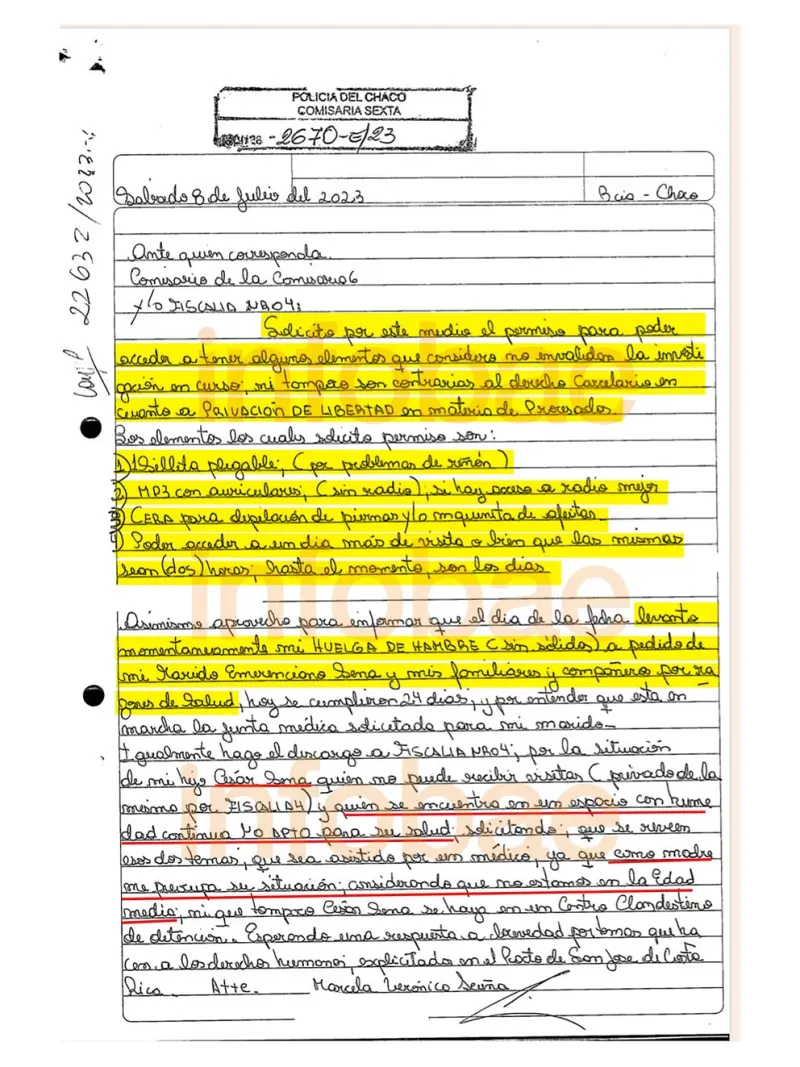 POLICIA DEL CHACO
COMISARIA SEXTA
-2670-E/23
22632/2023
Sabado 8 de Julio del 2023
Rcia - Chaco
Ante quien corresponda.
Comisario de la Comisaria 6
y/o FISCALIA NRO 4:
Solicito por este medio el permiso para poder
acceder a tener algunos elementos que considero no invalidan la investi
gación en curso; ni tampoco son contrarias al derecho Carcelario en
cuanto a PRIVACIÓN DE LIBERTAD en materia de Procesados.
Los elementos los cuales solicito permiso son:
1) 1 Sillita plegable; (por problemas de riñón)
2) MP3 con auriculares; (sin radio); si hay acceso a radio mejor
3) CERA para depilación de piernas y/o maquinita de afeitar.
Poder acceder a un dia más de visita o bien que las mismas
sean (dos) horas; hasta el momento, son los dias
Asimismo aprovecho para informar que el dia de la fecha levanto
momentaneamente mi HUELGA DE HAMBRE (sin sólidos) a pedido de
mi Marido Emerenciano Sena y mis familiares y compañeros por ra
zones de Salud, hoy se cumplieron 24 dias; y por entender que esta en
marcha la junta médica solicitada para mi marido-
Igualmente hago el descargo a FISCALIA NRO 4; por la situación
de mi hijo César Sena quién no puede recibir visitas (privado de la
misma por FISCALIA 4) y quién se encuentra en un espacio con hume
dad continua NO APTO para su salud; solicitando; que se reveen
esos dos temas; que sea asistido por un médico, ya que como madre
me preocupa su situación; considerando que no estamos en la Edad
media; ni que tampoco César Sena se haya en un Centro Clandestino
de detención. Esperando una respuesta a brevedad por temas que ha
cen a los derechos humanos; explicitado en el Pacto de San Jose de Costa
Rica. Atte. Marcela Verónica Acuña
infobae
infobae
infobae